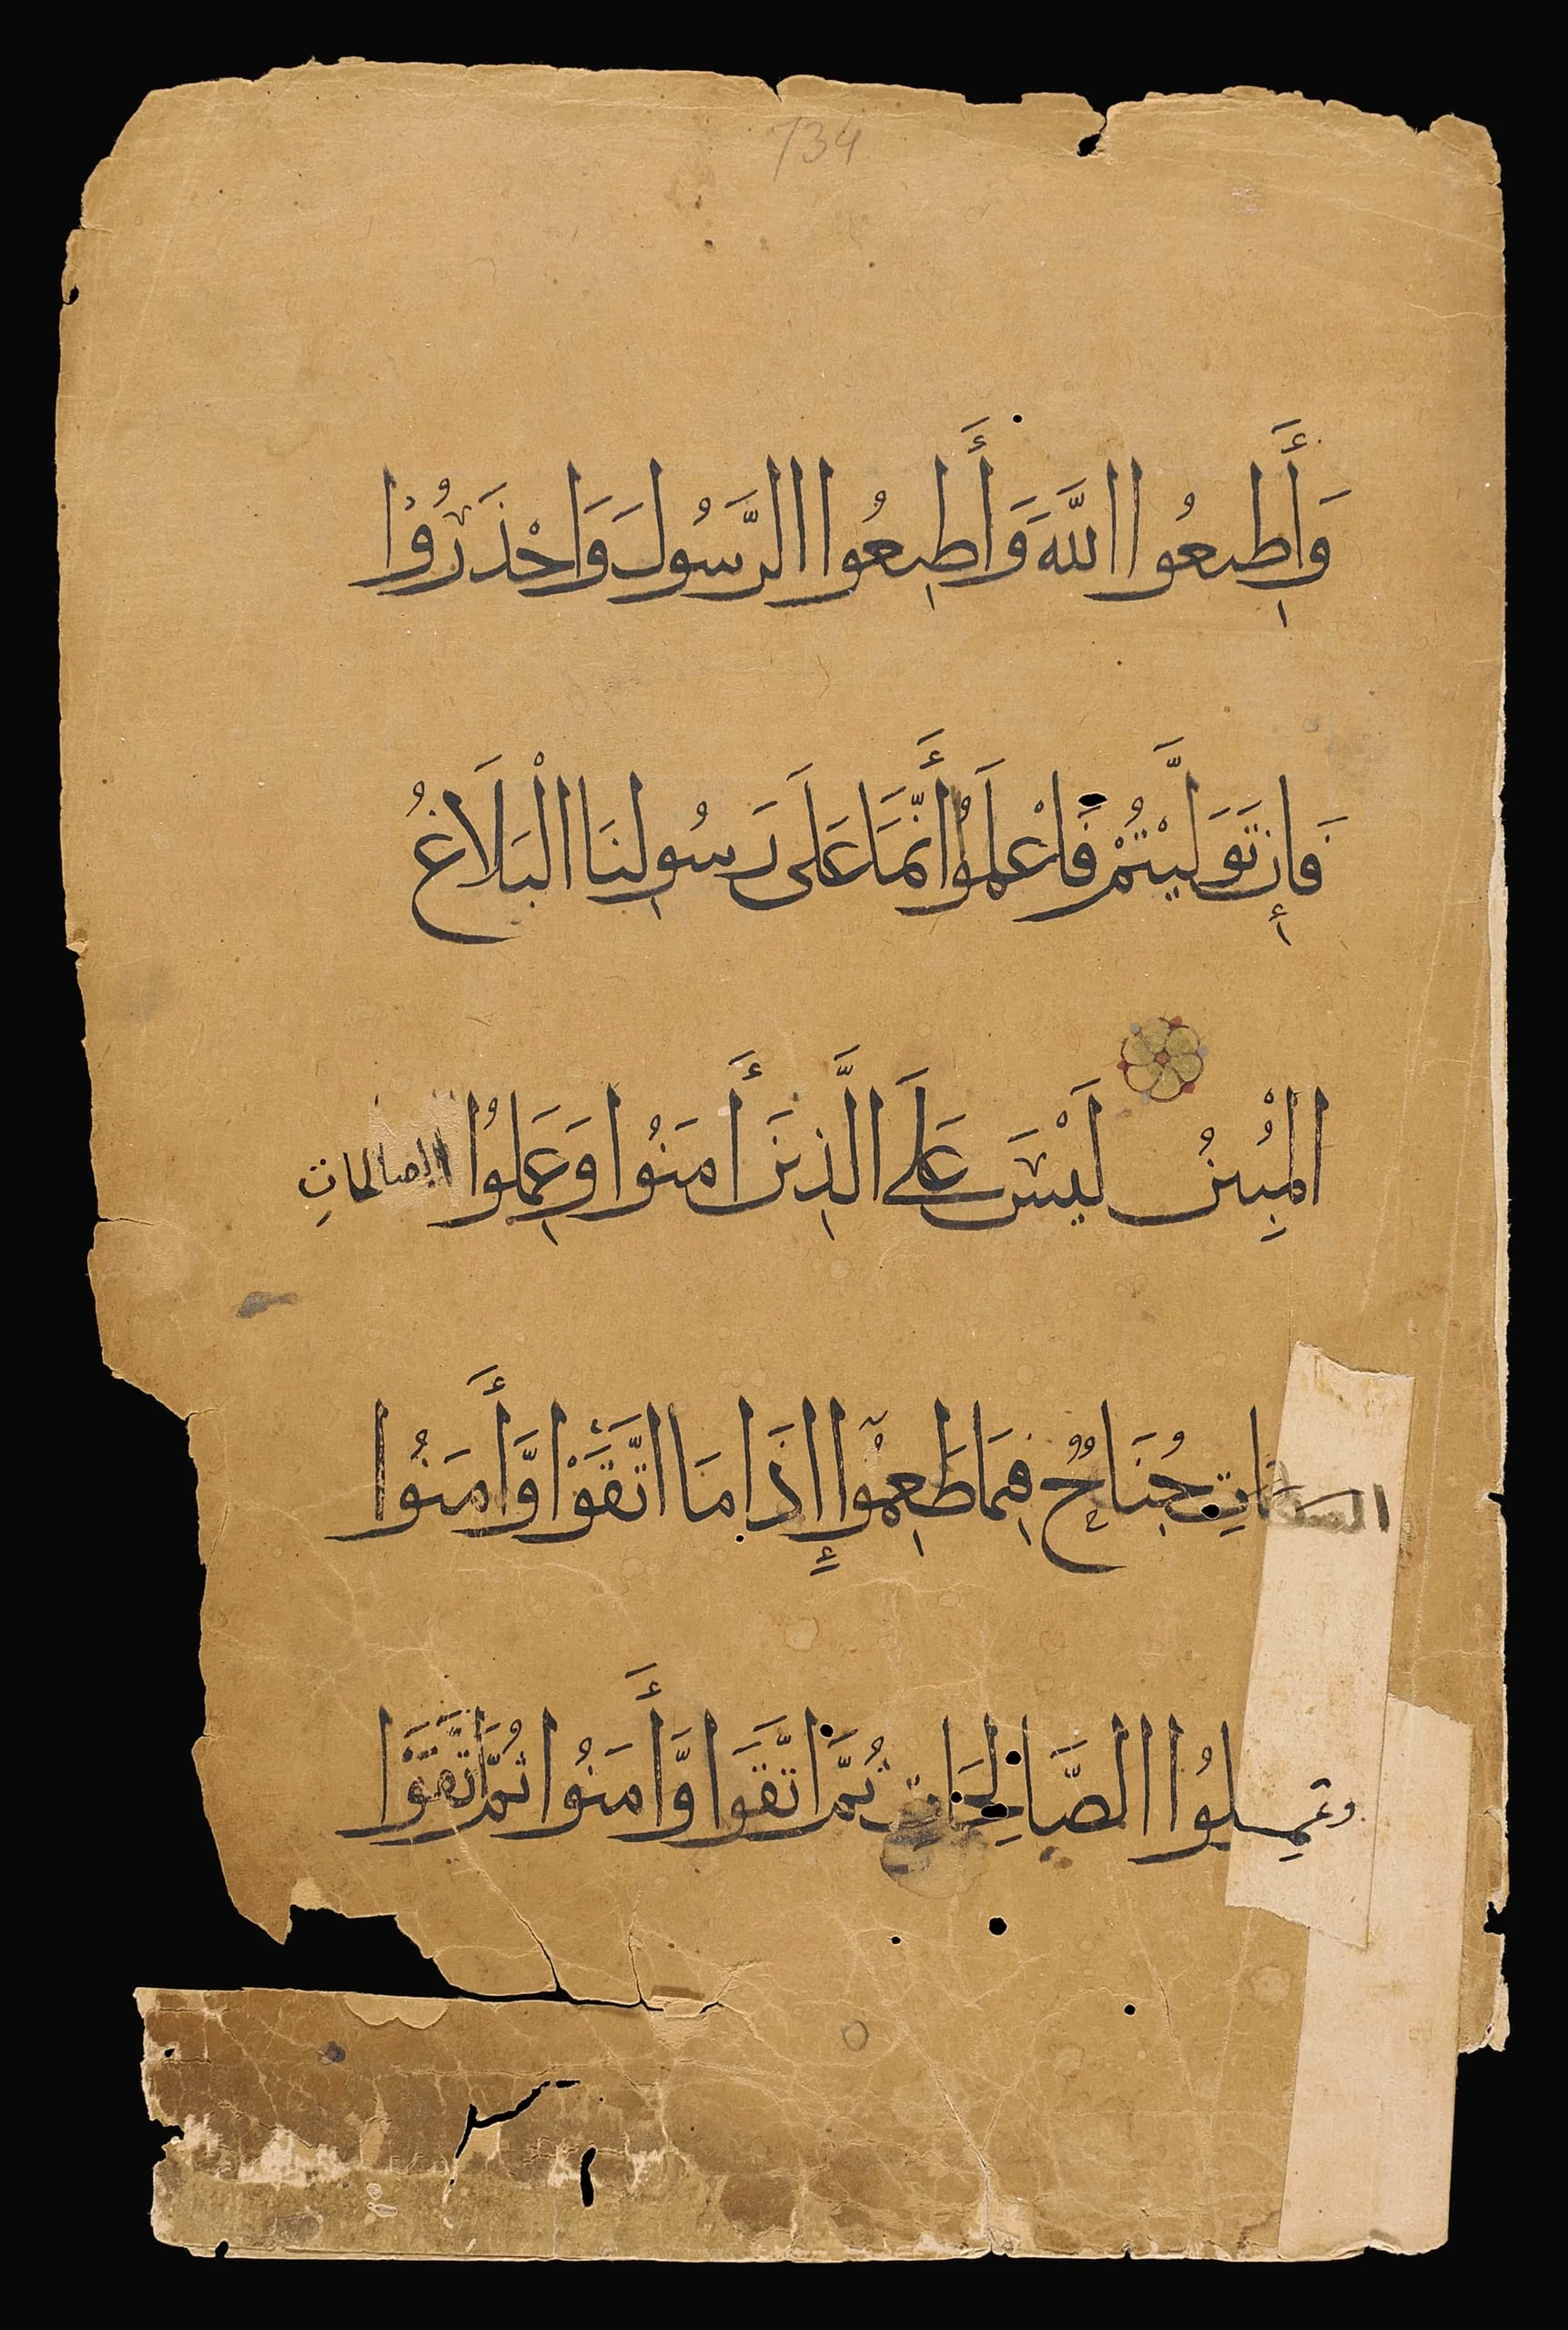 734
وَأَطِيعُوا اللَّهَ وَأَطِيعُوا الرَّسُولَ وَاحْذَرُوْا
فَإِن تَوَلَّيْتُمْ فَاعْلَمُوا أَنَّمَا عَلَى رَسُولِنَا الْبَلَاغُ
الْمُبِينُ لَيْسَ عَلَى الَّذِينَ أَمَنُوا وَعَمِلُوا الصالحاتِ
جُنَاحٌ فِيمَا طَعِمُوا إِذَا مَا اتَّقَوْا وَّأَمَنُوا
وعَمِلُوا الصَّالِحَاتِ ثُمَّ اتَّقَوا وَّأَمَنُوا ثُمَّ اتَّقَوْا